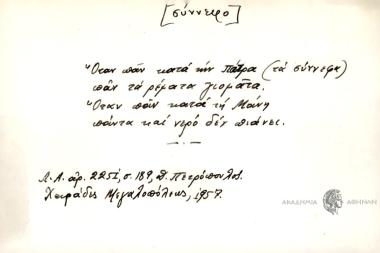 [σύννεφο]
Ὅταν πᾶν κατά τήν Πάτρα (τά σύννεφα)
πᾶν τά ρέματα γιομᾶτα.
Ὅταν πᾶν κατά τή Μάνη
πάντα καί νερό δέν πιάνει.
Λ.Α. ἀρ. 2251, σ. 189, Δ. Πετρόπουλος.
Χειράδες Μεγαλοπόλεως, 1957.
ΑΚΑΔΗΜΙΑ ΑΘΗΝΩΝ